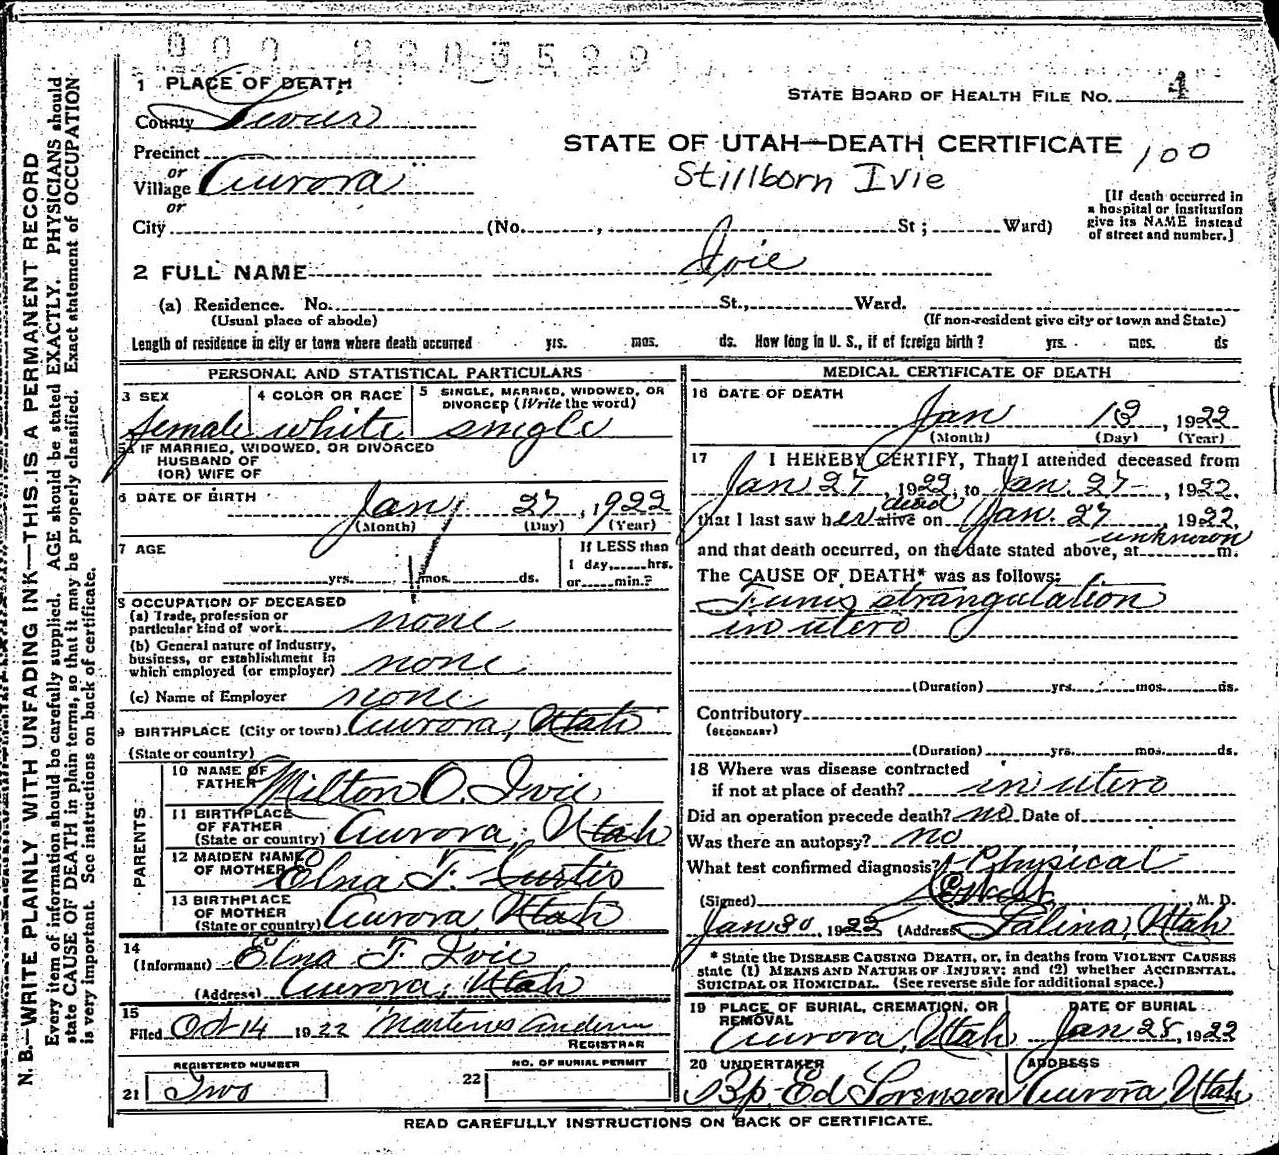 000 8203599
1 PLACE OF DEATH
STATE BOARD OF HEALTH FILE NO. 4
County Sevier
STATE OF UTAH—DEATH CERTIFICATE 100
Precinct
or
Village Aurora
Stillborn Ivie
or
City (No. , St ; Ward)
[If death occurred in
a hospital or institution
give its NAME instead
of street and number.]
2 FULL NAME Ivie
(a) Residence. No. St., Ward.
(Usual place of abode) (If non-resident give city or town and State)
Length of residence in city or town where death occurred yrs. mos. ds. How long in U. S., if of foreign birth? yrs. mos. ds
PERSONAL AND STATISTICAL PARTICULARS
3 SEX 4 COLOR OR RACE 5 SINGLE, MARRIED, WIDOWED, OR
DIVORCED (Write the word)
female white single
5a IF MARRIED, WIDOWED, OR DIVORCED
HUSBAND OF
(OR) WIFE OF
6 DATE OF BIRTH Jan 27, 1922
(Month) (Day) (Year)
7 AGE If LESS than
1 day, hrs.
yrs. mos. ds. or min.?
8 OCCUPATION OF DECEASED
(a) Trade, profession or
particular kind of work none
(b) General nature of Industry,
business, or establishment in
which employed (or employer) none
(c) Name of Employer none
9 BIRTHPLACE (City or town) Aurora, Utah
(State or country)
PARENTS.
10 NAME OF
FATHER Milton O. Ivie
11 BIRTHPLACE
OF FATHER
(State or country) Aurora, Utah
12 MAIDEN NAME
OF MOTHER Elna F. Curtis
13 BIRTHPLACE
OF MOTHER
(State or country) Aurora, Utah
14
(Informant) Elna F. Ivie
(Address) Aurora, Utah
15
Filed Oct 14 1922 Martenes
REGISTRAR
REGISTERED NUMBER NO. OF BURIAL PERMIT
21 Two 22
MEDICAL CERTIFICATE OF DEATH
16 DATE OF DEATH
Jan , 1922
(Month) (Day) (Year)
17 I HEREBY CERTIFY, That I attended deceased from
Jan 27 1922, to Jan. 27, 1922,
dead
that I last saw her alive on Jan. 27 1922,
unknown
and that death occurred, on the date stated above, at m.
The CAUSE OF DEATH* was as follows:
Funis strangulation
in utero
(Duration) yrs. mos. ds.
Contributory
(SECONDARY)
(Duration) yrs. mos. ds.
18 Where was disease contracted
if not at place of death? in utero
Did an operation precede death? no Date of
Was there an autopsy? no
What test confirmed diagnosis? Physical
(Signed) M. D.
Jan 30, 1922 (Address Salina, Utah
* State the DISEASE CAUSING DEATH, or, in deaths from VIOLENT CAUSES
state (1) MEANS AND NATURE OF INJURY; and (2) whether ACCIDENTAL,
SUICIDAL OR HOMICIDAL. (See reverse side for additional space.)
19 PLACE OF BURIAL, CREMATION, OR
REMOVAL
DATE OF BURIAL
Aurora, Utah Jan 28, 1922
20 UNDERTAKER ADDRESS
Bp. Ed Sorenson Aurora, Utah
READ CAREFULLY INSTRUCTIONS ON BACK OF CERTIFICATE.
N. B.—WRITE PLAINLY WITH UNFADING INK—THIS IS A PERMANENT RECORD
Every item of information should be carefully supplied. AGE should be stated EXACTLY. PHYSICIANS should
state CAUSE OF DEATH in plain terms, so that it may be properly classified. Exact statement of OCCUPATION
is very important. See instructions on back of certificate.